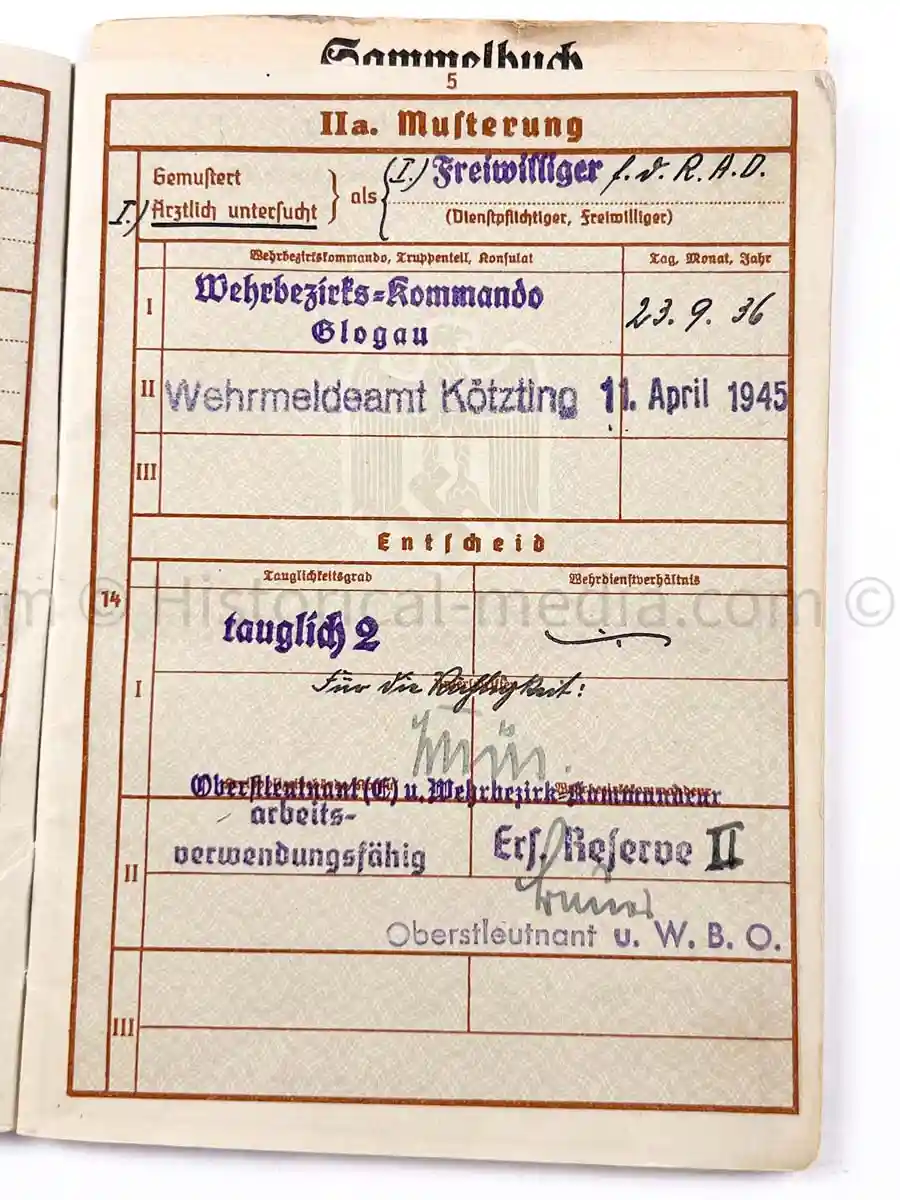 Sammelbuch
5
IIa. Musterung
Gemustert
I.) Ärztlich untersucht
als
(I.) Freiwilliger f. d. R. A. D.
(Dienstpflichtiger, Freiwilliger)
Wehrbezirkskommando, Truppenteil, Konsulat
Tag, Monat, Jahr
I
Wehrbezirks=Kommando
Glogau
23. 9. 36
II
Wehrmeldeamt Kötzting
11. April 1945
III
Entscheid
14
Tauglichkeitsgrad
Wehrdienstverhältnis
I
tauglich 2
Für die Richtigkeit:
Oberstleutnant (E) u. Wehrbezirk=Kommandeur
II
arbeits-
verwendungsfähig
Ers. Reserve II
Oberstleutnant u. W. B. O.
III
© Historical-media.com ©